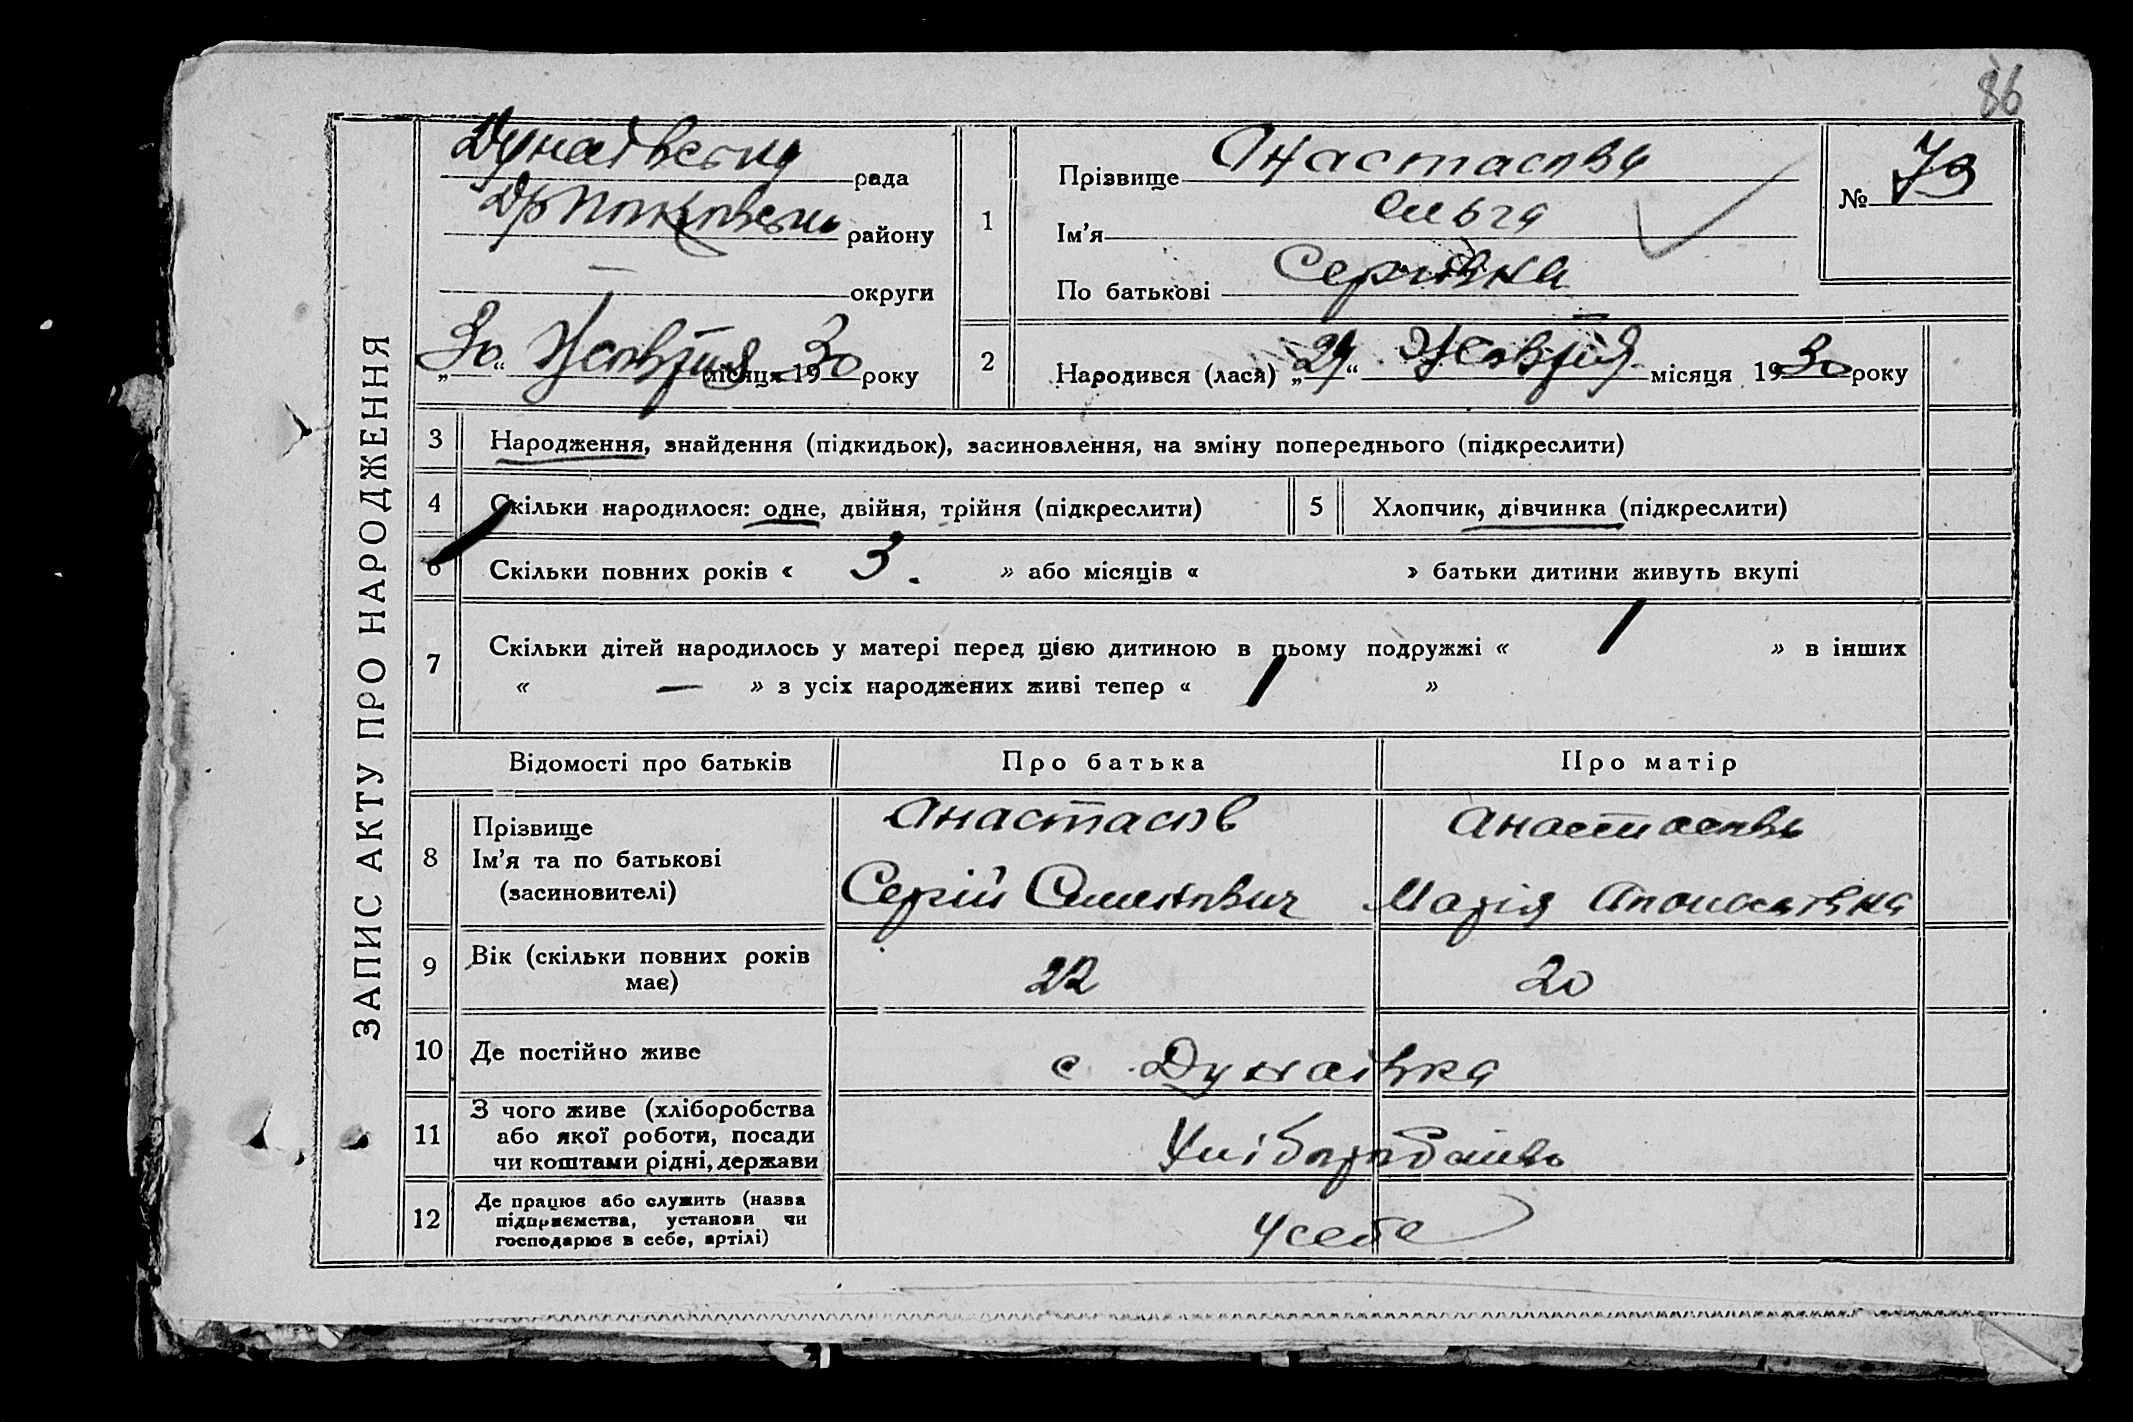 86
ЗАПИС АКТУ ПРО НАРОДЖЕННЯ
Дунаївська рада
району
— округи
„30“ Жовтня місяця 1930 року
1
Прізвище Анастасова
Ім’я Ольга
По батькові Сергіївна
№ 73
2
Народився (лася) „29“ Жовтня місяця 1930 року
3 Народження, знайдення (підкидьок), засиновлення, на зміну попереднього (підкреслити)
4 Скільки народилося: одне, двійня, трійня (підкреслити) 5 Хлопчик, дівчинка (підкреслити)
6 Скільки повних років « 3. » або місяців « » батьки дитини живуть вкупі
7 Скільки дітей народилось у матері перед цією дитиною в цьому подружжі « 1 » в інших
« — » з усіх народжених живі тепер « 1 »
Відомості про батьків Про батька Про матір
8 Прізвище Анастасов Анастасова
Ім’я та по батькові
(засиновителі) Сергій Семенович Марія
9 Вік (скільки повних років має) 22 20
10 Де постійно живе с Дунаївка
11 З чого живе (хліборобства
або якої роботи, посади
чи коштами рідні, держави Хліборобство
12 Де працює або служить (назва
підприємства, установи чи
господарює в себе, артілі) У себе